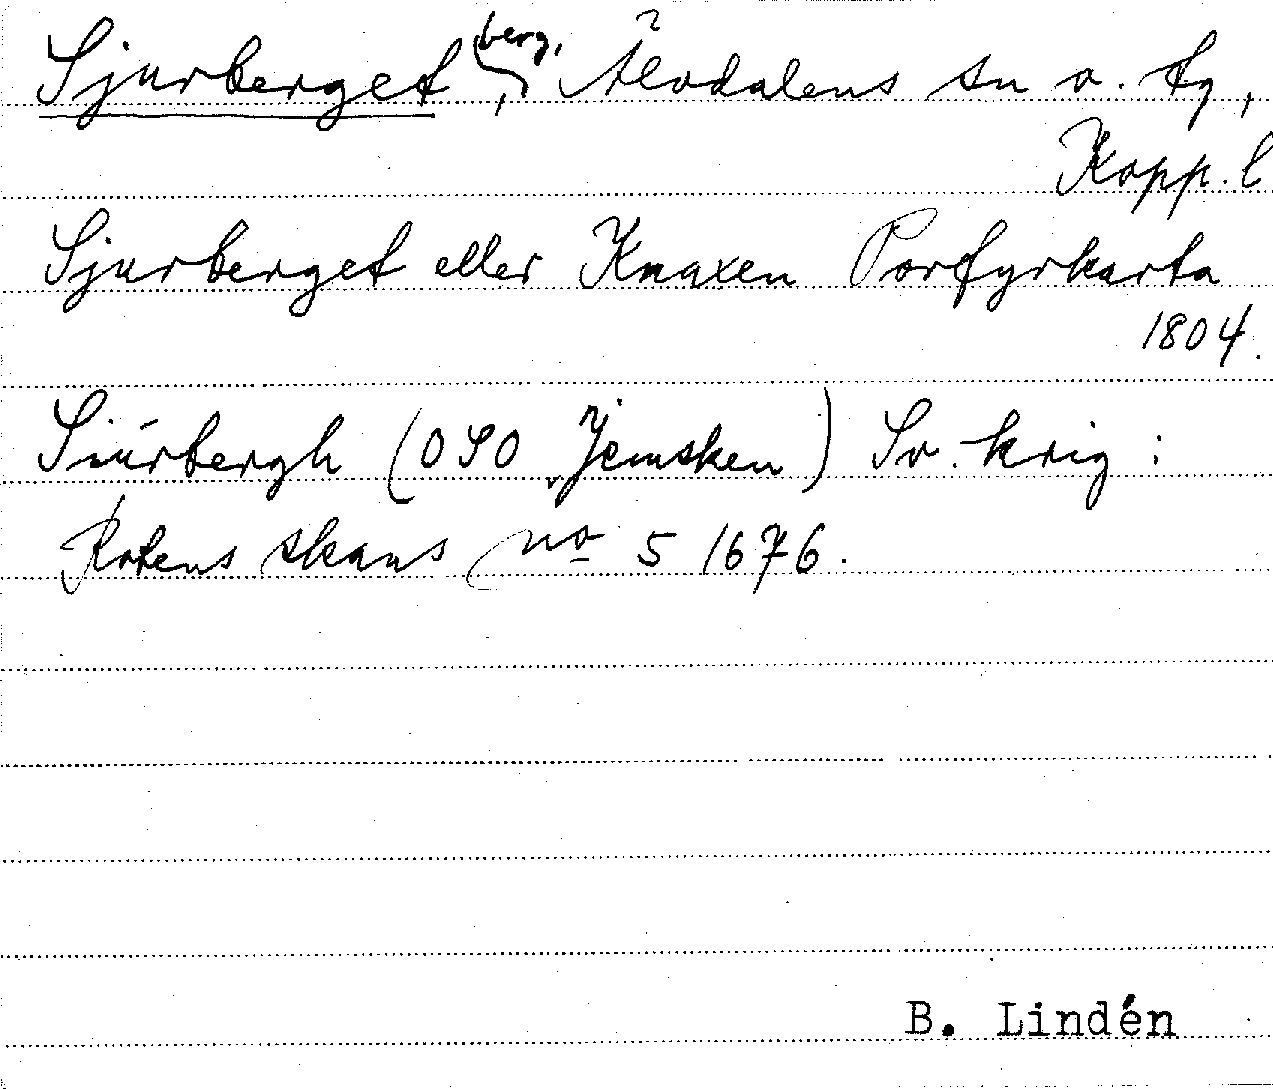 Sjurberget, berg, Älvdalens sn o. tg,
Kopp. l
Sjurberget eller Knaxen Porfyrkarta
1804.
Siúrbergh (OSO Jemsken) Sv. krig:
Rotens skans no 5 1676.
B. Lindén